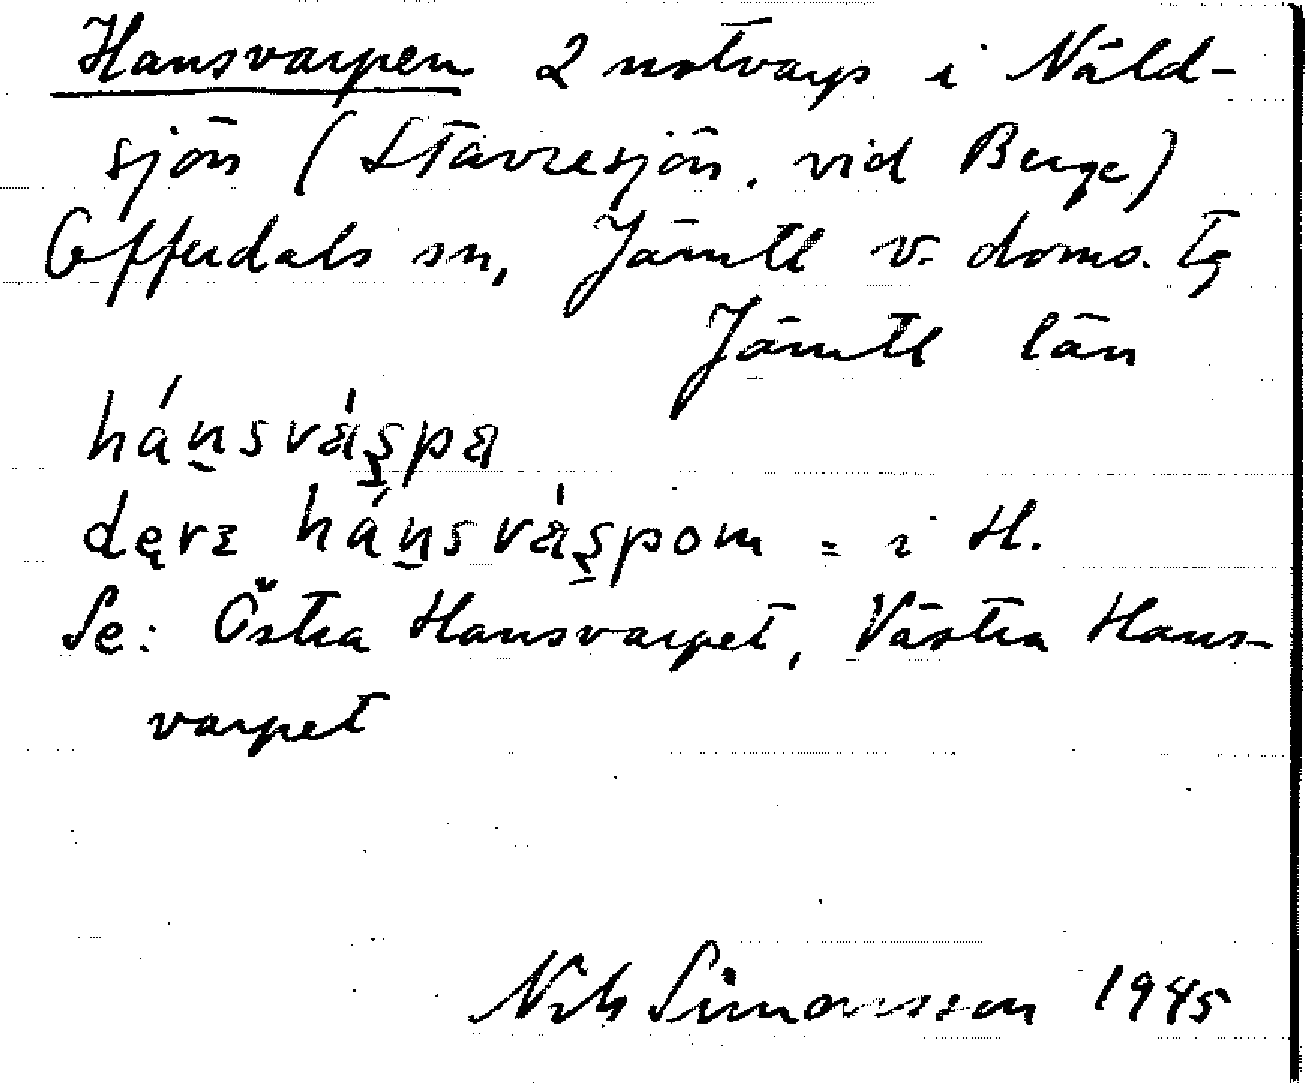 Hansvarpen 2 notvarp i Näld-
sjön (Stavresjön, vid Berge)
Offerdals sn, Jämtl v. doms. tg
Jämtl län
háṉsvás̱pa
dęrɛ háṉsvás̱pom = i H.
Se: Östra Hansvarpet, Västra Hans-
varpet
Nils Simonsson 1945